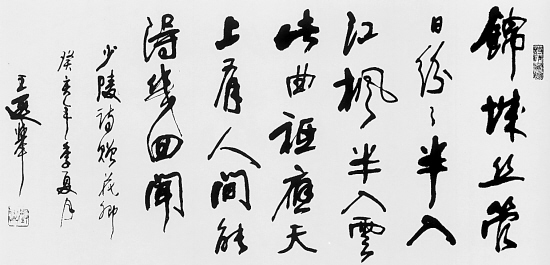 錦城丝管
日紛々半入
江楓半入雲
此曲祗應天
上有人間能
得幾回聞
少陵詩贈花卿
癸亥年季夏月
王遐舉